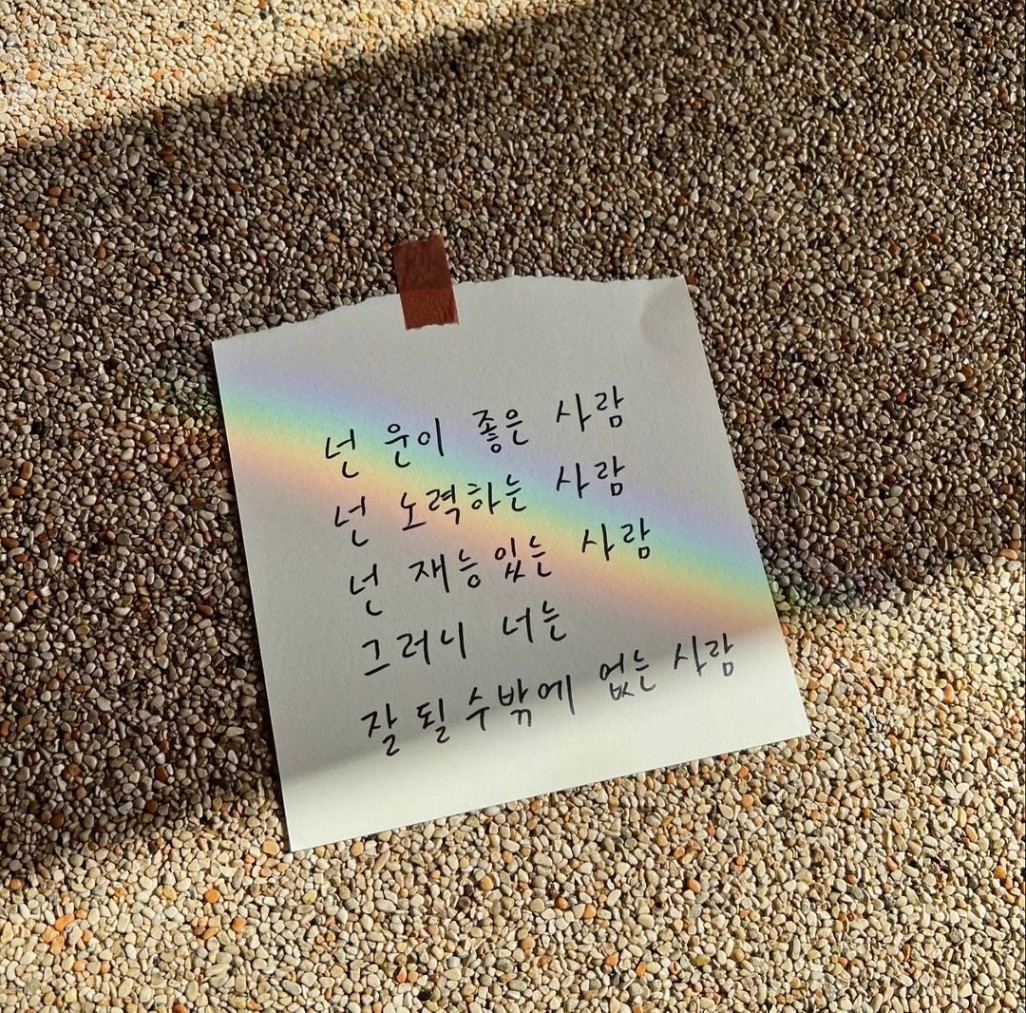 넌 운이 좋은 사람
넌 노력하는 사람
넌 재능있는 사람
그러니 너는
잘 될 수밖에 없는 사람